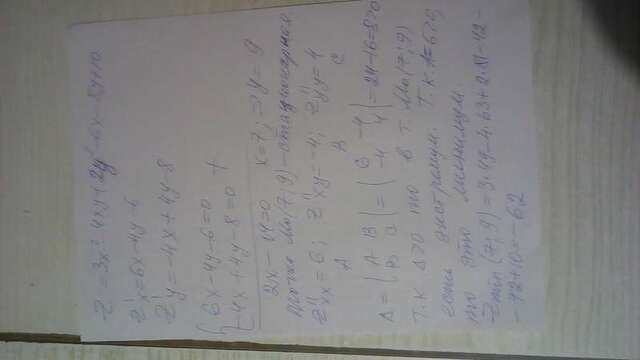 Z = 3x² - 4xy + 2y² - 6x - 8y + 10
Z'x = 6x - 4y - 6
Z'y = -4x + 4y - 8
{ 6x - 4y - 6 = 0 +
-4x + 4y - 8 = 0
2x - 14 = 0 x = 7; ⇒ y = 9
точка M₀(7; 9) - стационарная
Z''xx = 6; Z''xy = -4; Z''yy = 4
A B C
Δ = | A B | = | 6 -4 | = 24 - 16 = 8 > 0
| B C | | -4 4 |
т.к. Δ > 0 то в т. M₀(7; 9)
есть экстремум. Т.к. A = 6 > 0,
то это минимум.
Zmin (7; 9) = 3·49 - 4·63 + 2·81 - 42 -
- 72 + 10 = - 62